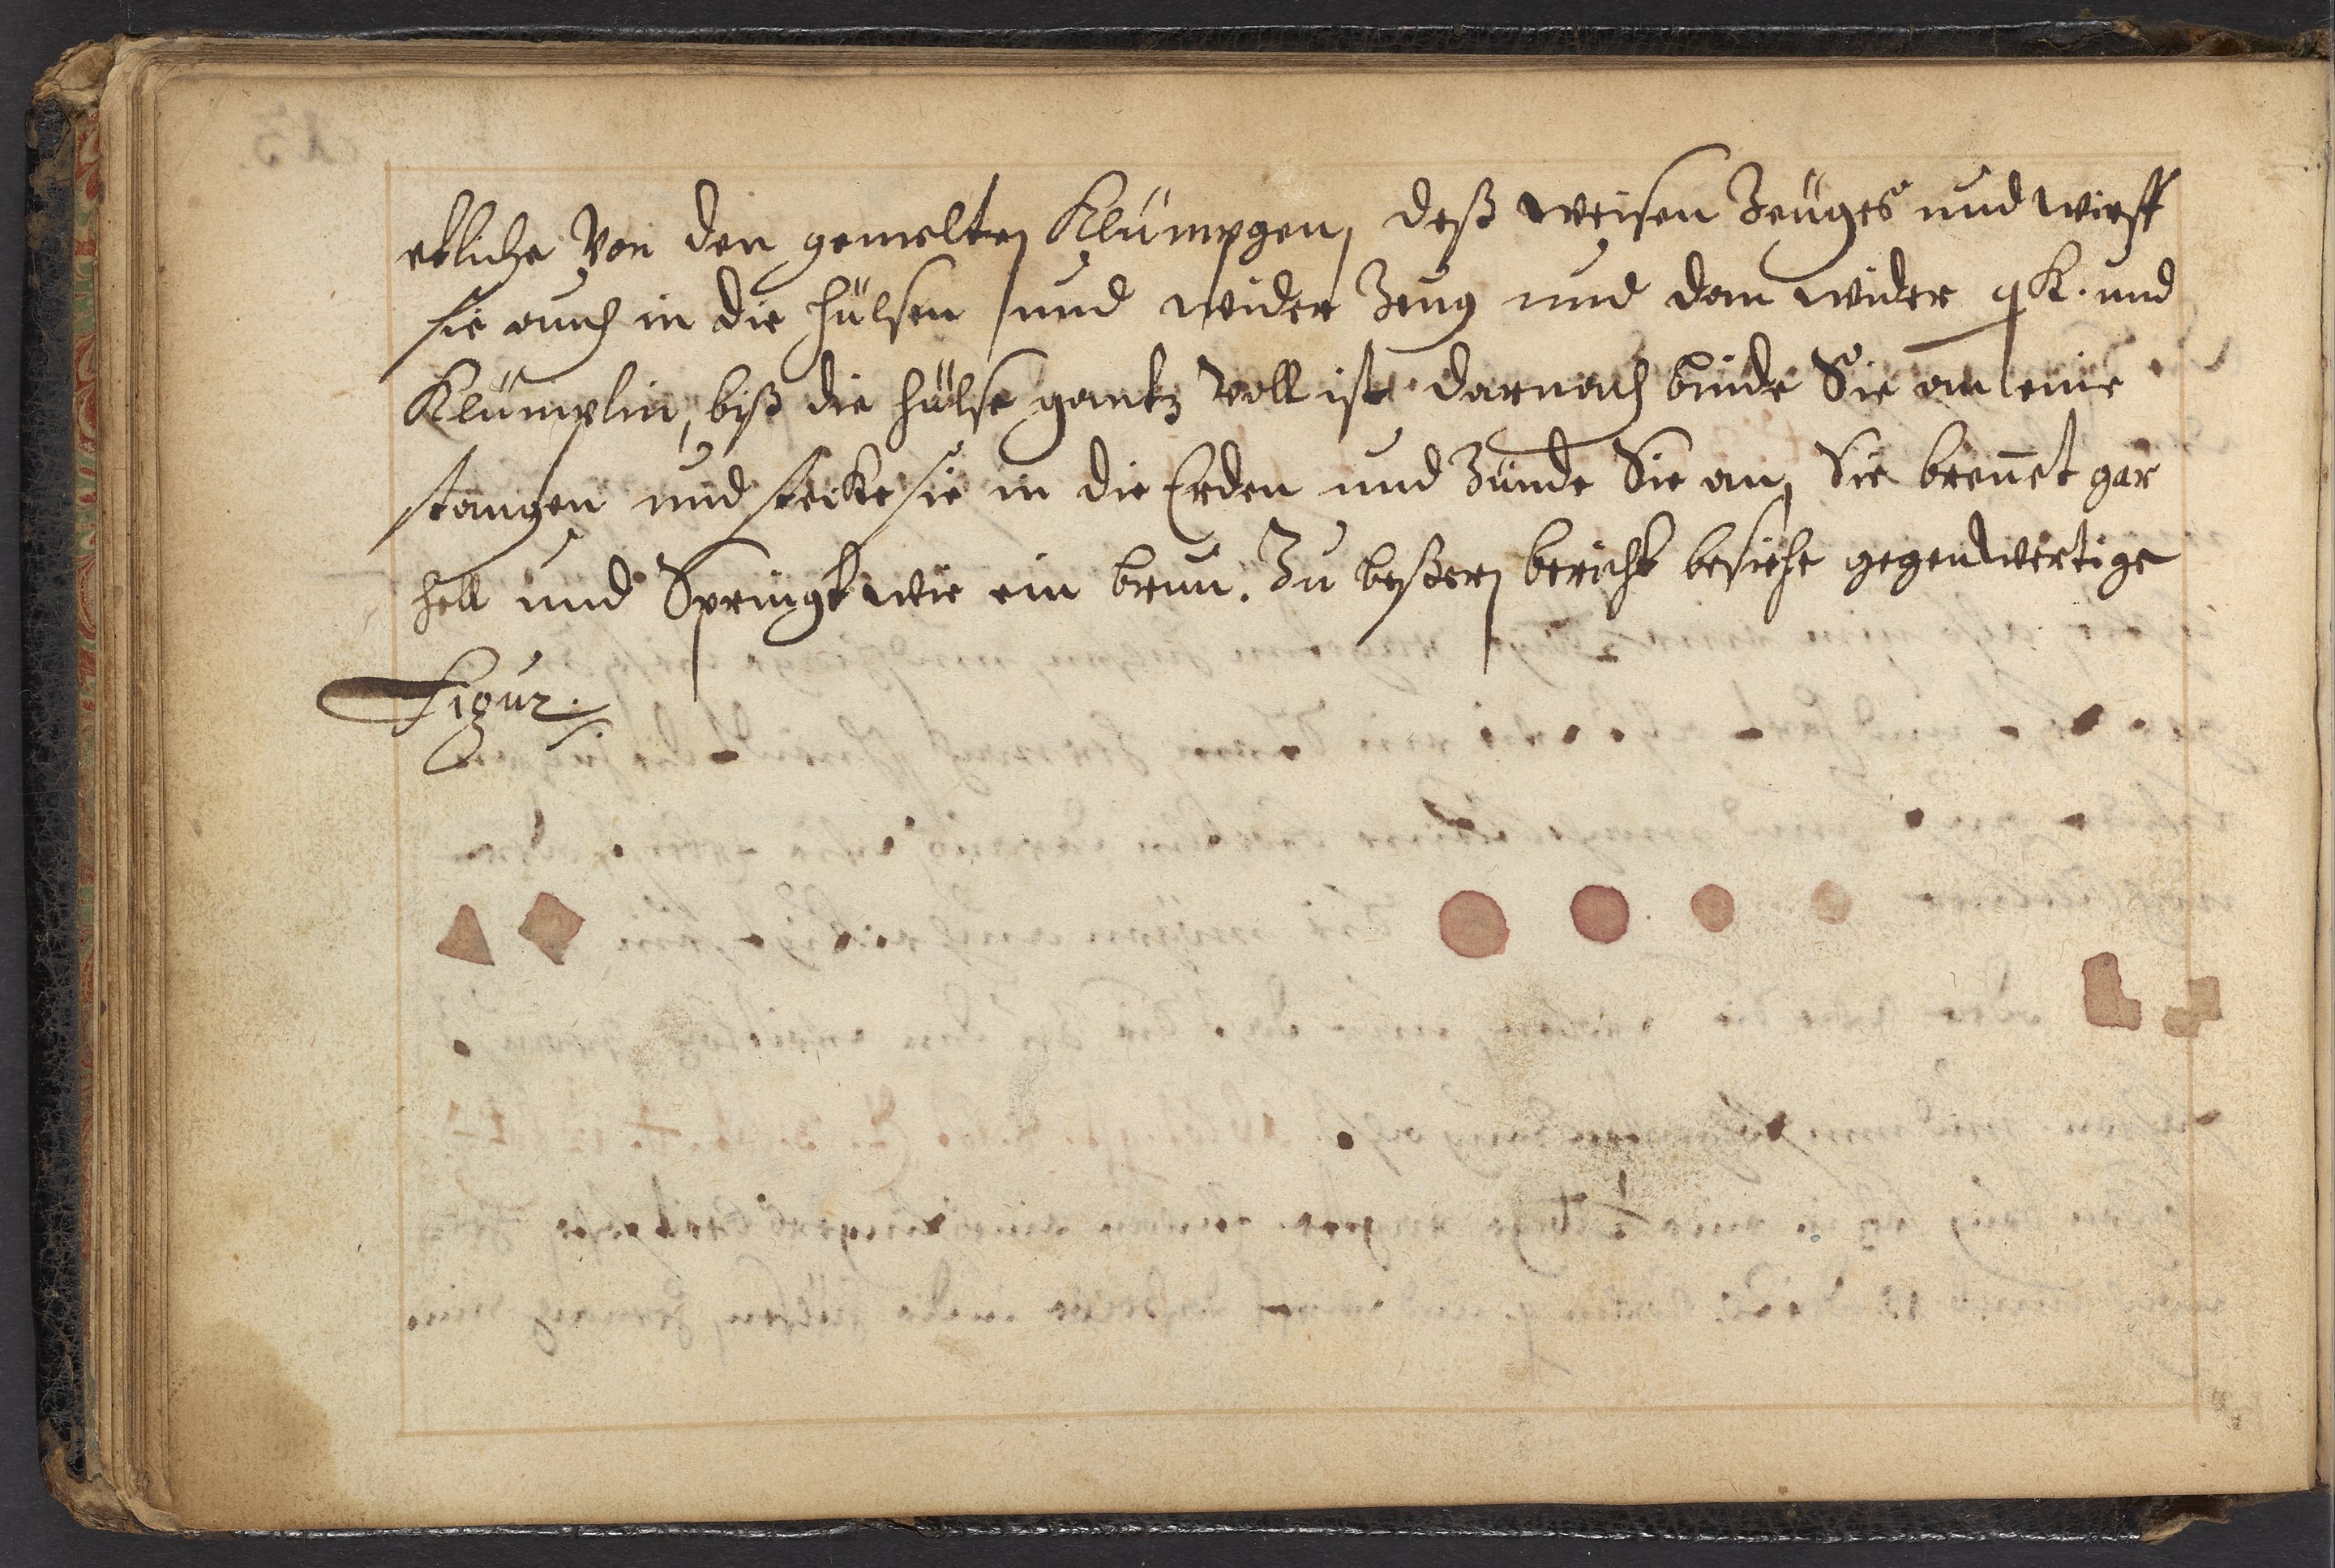 etliche Von den gemelten Klümpgen, deß weisen Zeuges und wirff
sie auch in die hülsen und wider Zeug und dan wider q K. und
Klümplin, biß die hülse gantz Voll ist darnach binde Sie an eine
stangen und stecke sie in die Erden und Zünde Sie an, Sie brennet gar
hell und Springt wie ein brun. Zu beßern bericht besiehe gegenwertige
Figur.